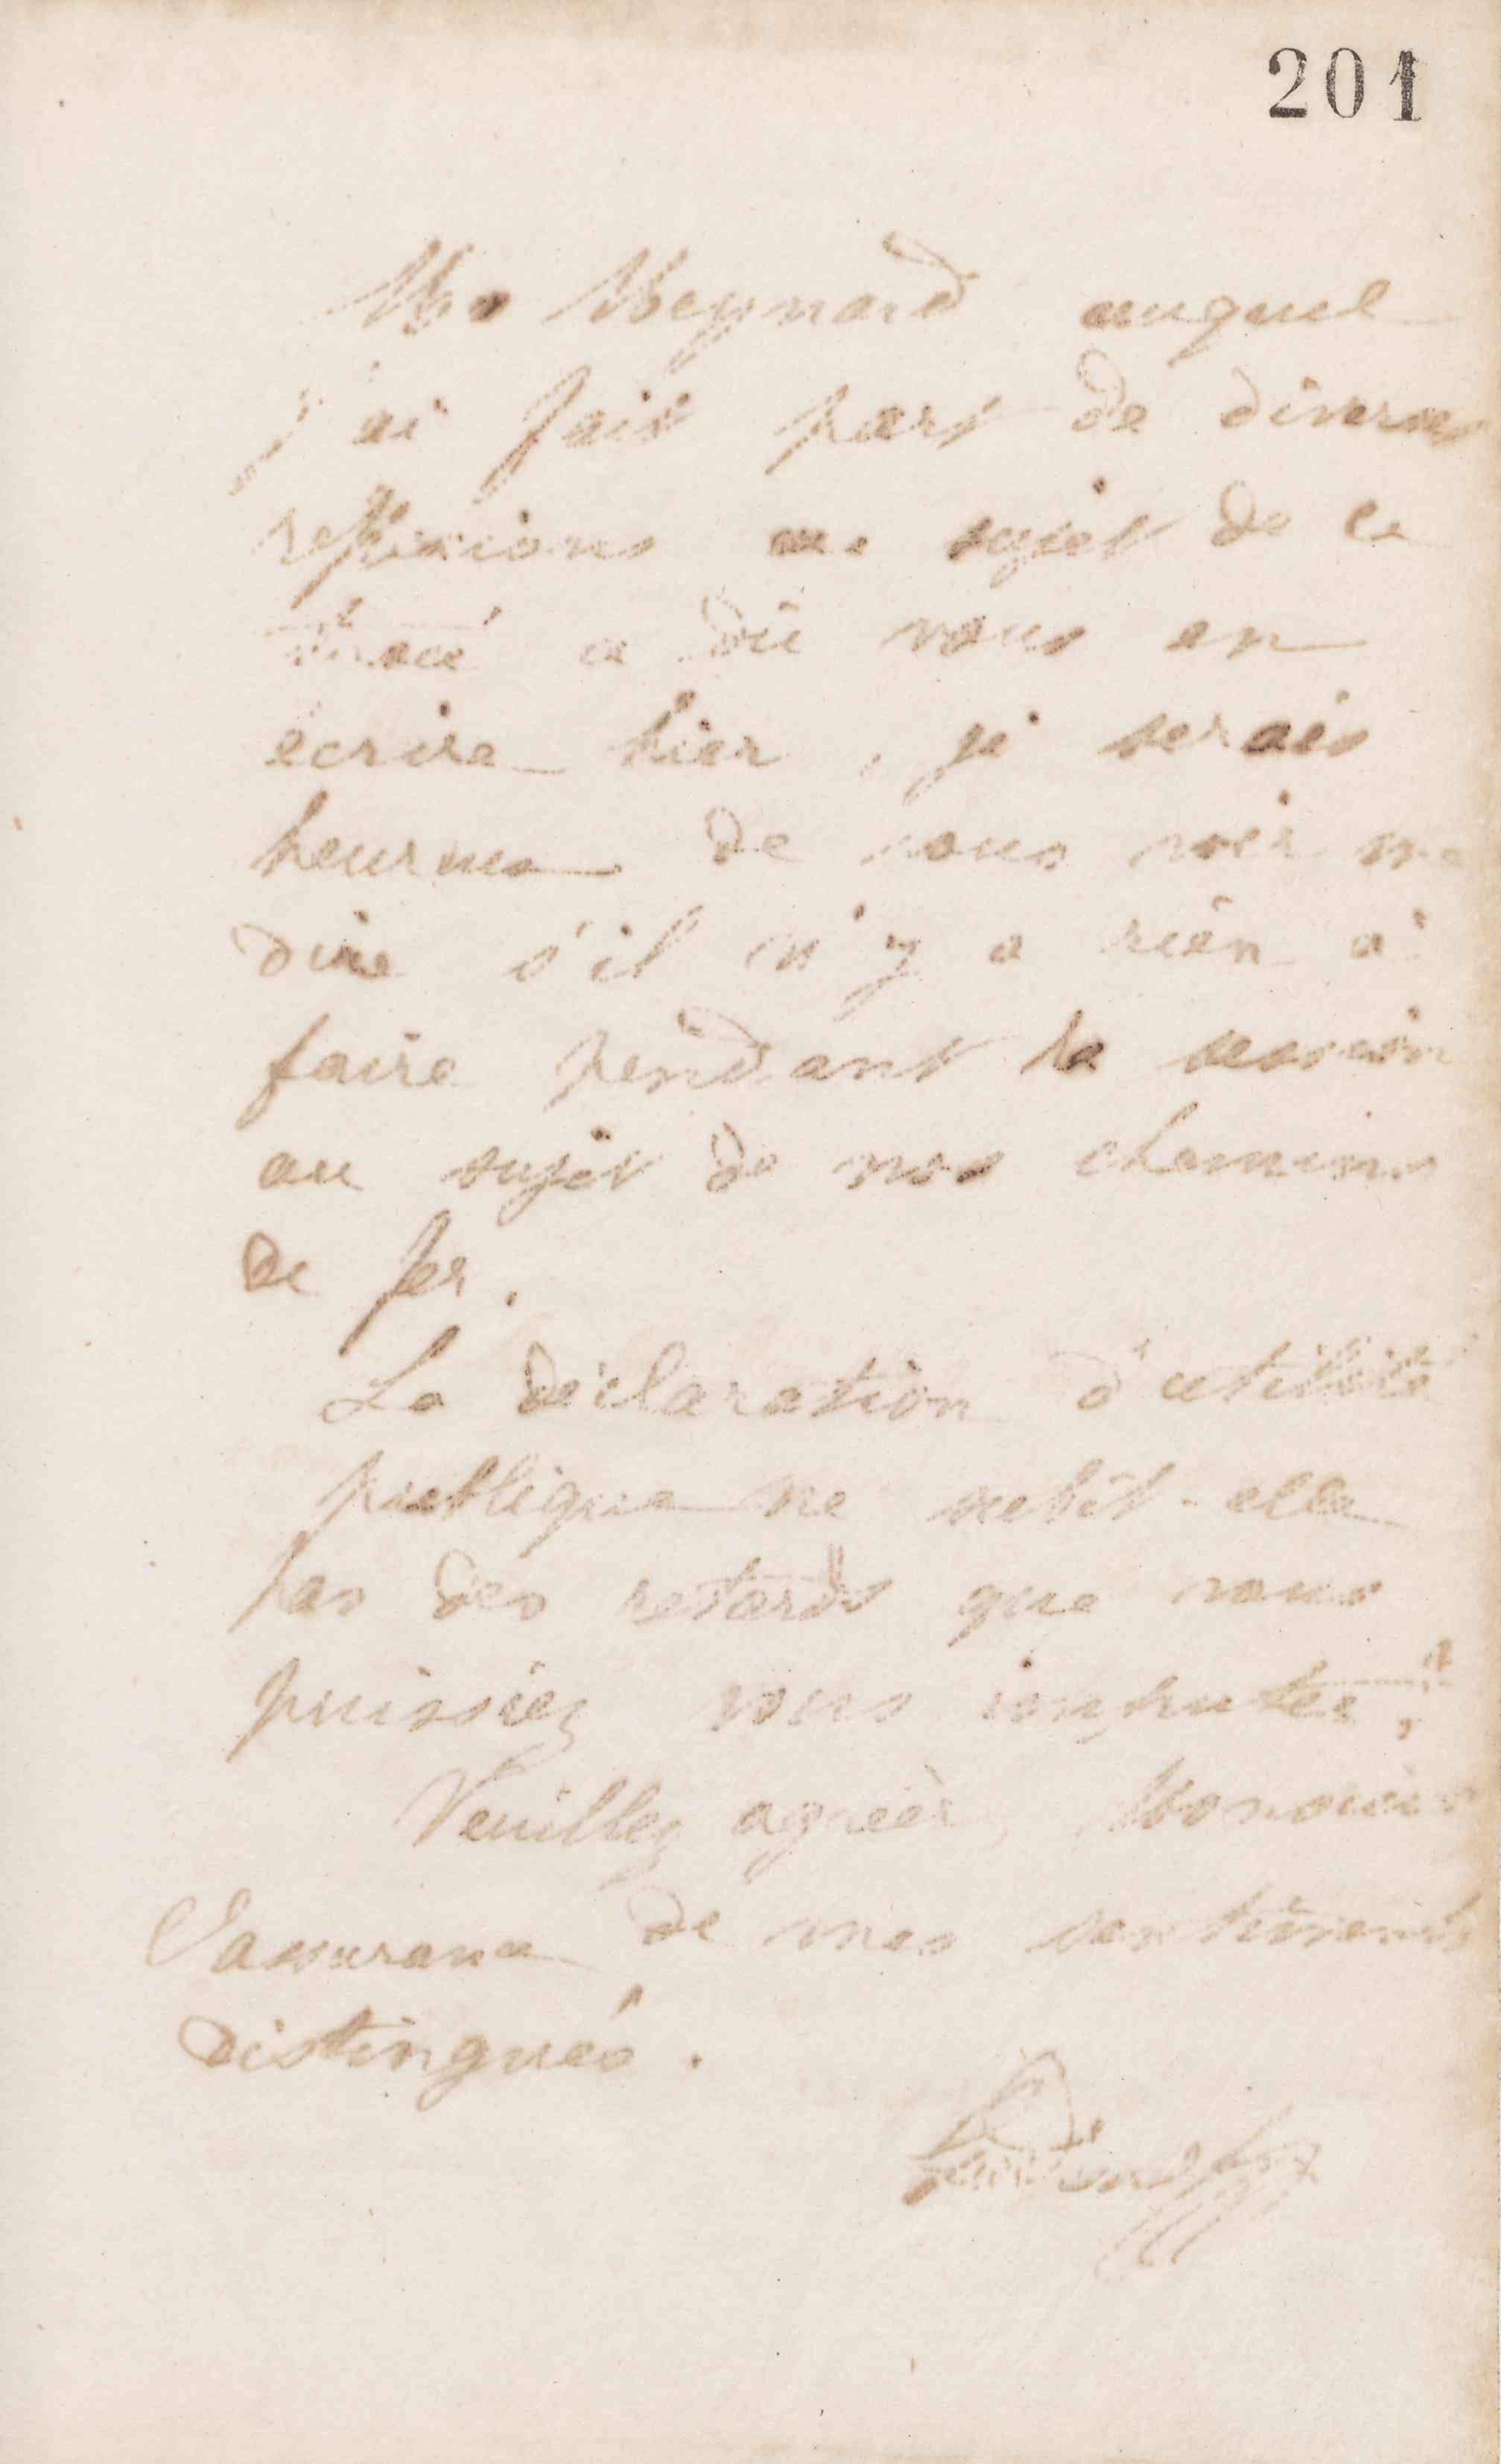 201
Mr Meynard auquel
j'ai fait part de diverses
reflexions au sujet de ce
tracé a dû vous en
écrire hier, je serais
heureux de vous voir me
dire s'il n'y a rien à
faire pendant la session
au sujet de nos chemins
de fer.
La déclaration d'utilité
publique ne subit-elle
pas des retards que vous
puissiez nous imputer ?
Veuillez agréer, Monsieur
l'assurance de mes sentiments
distingués.